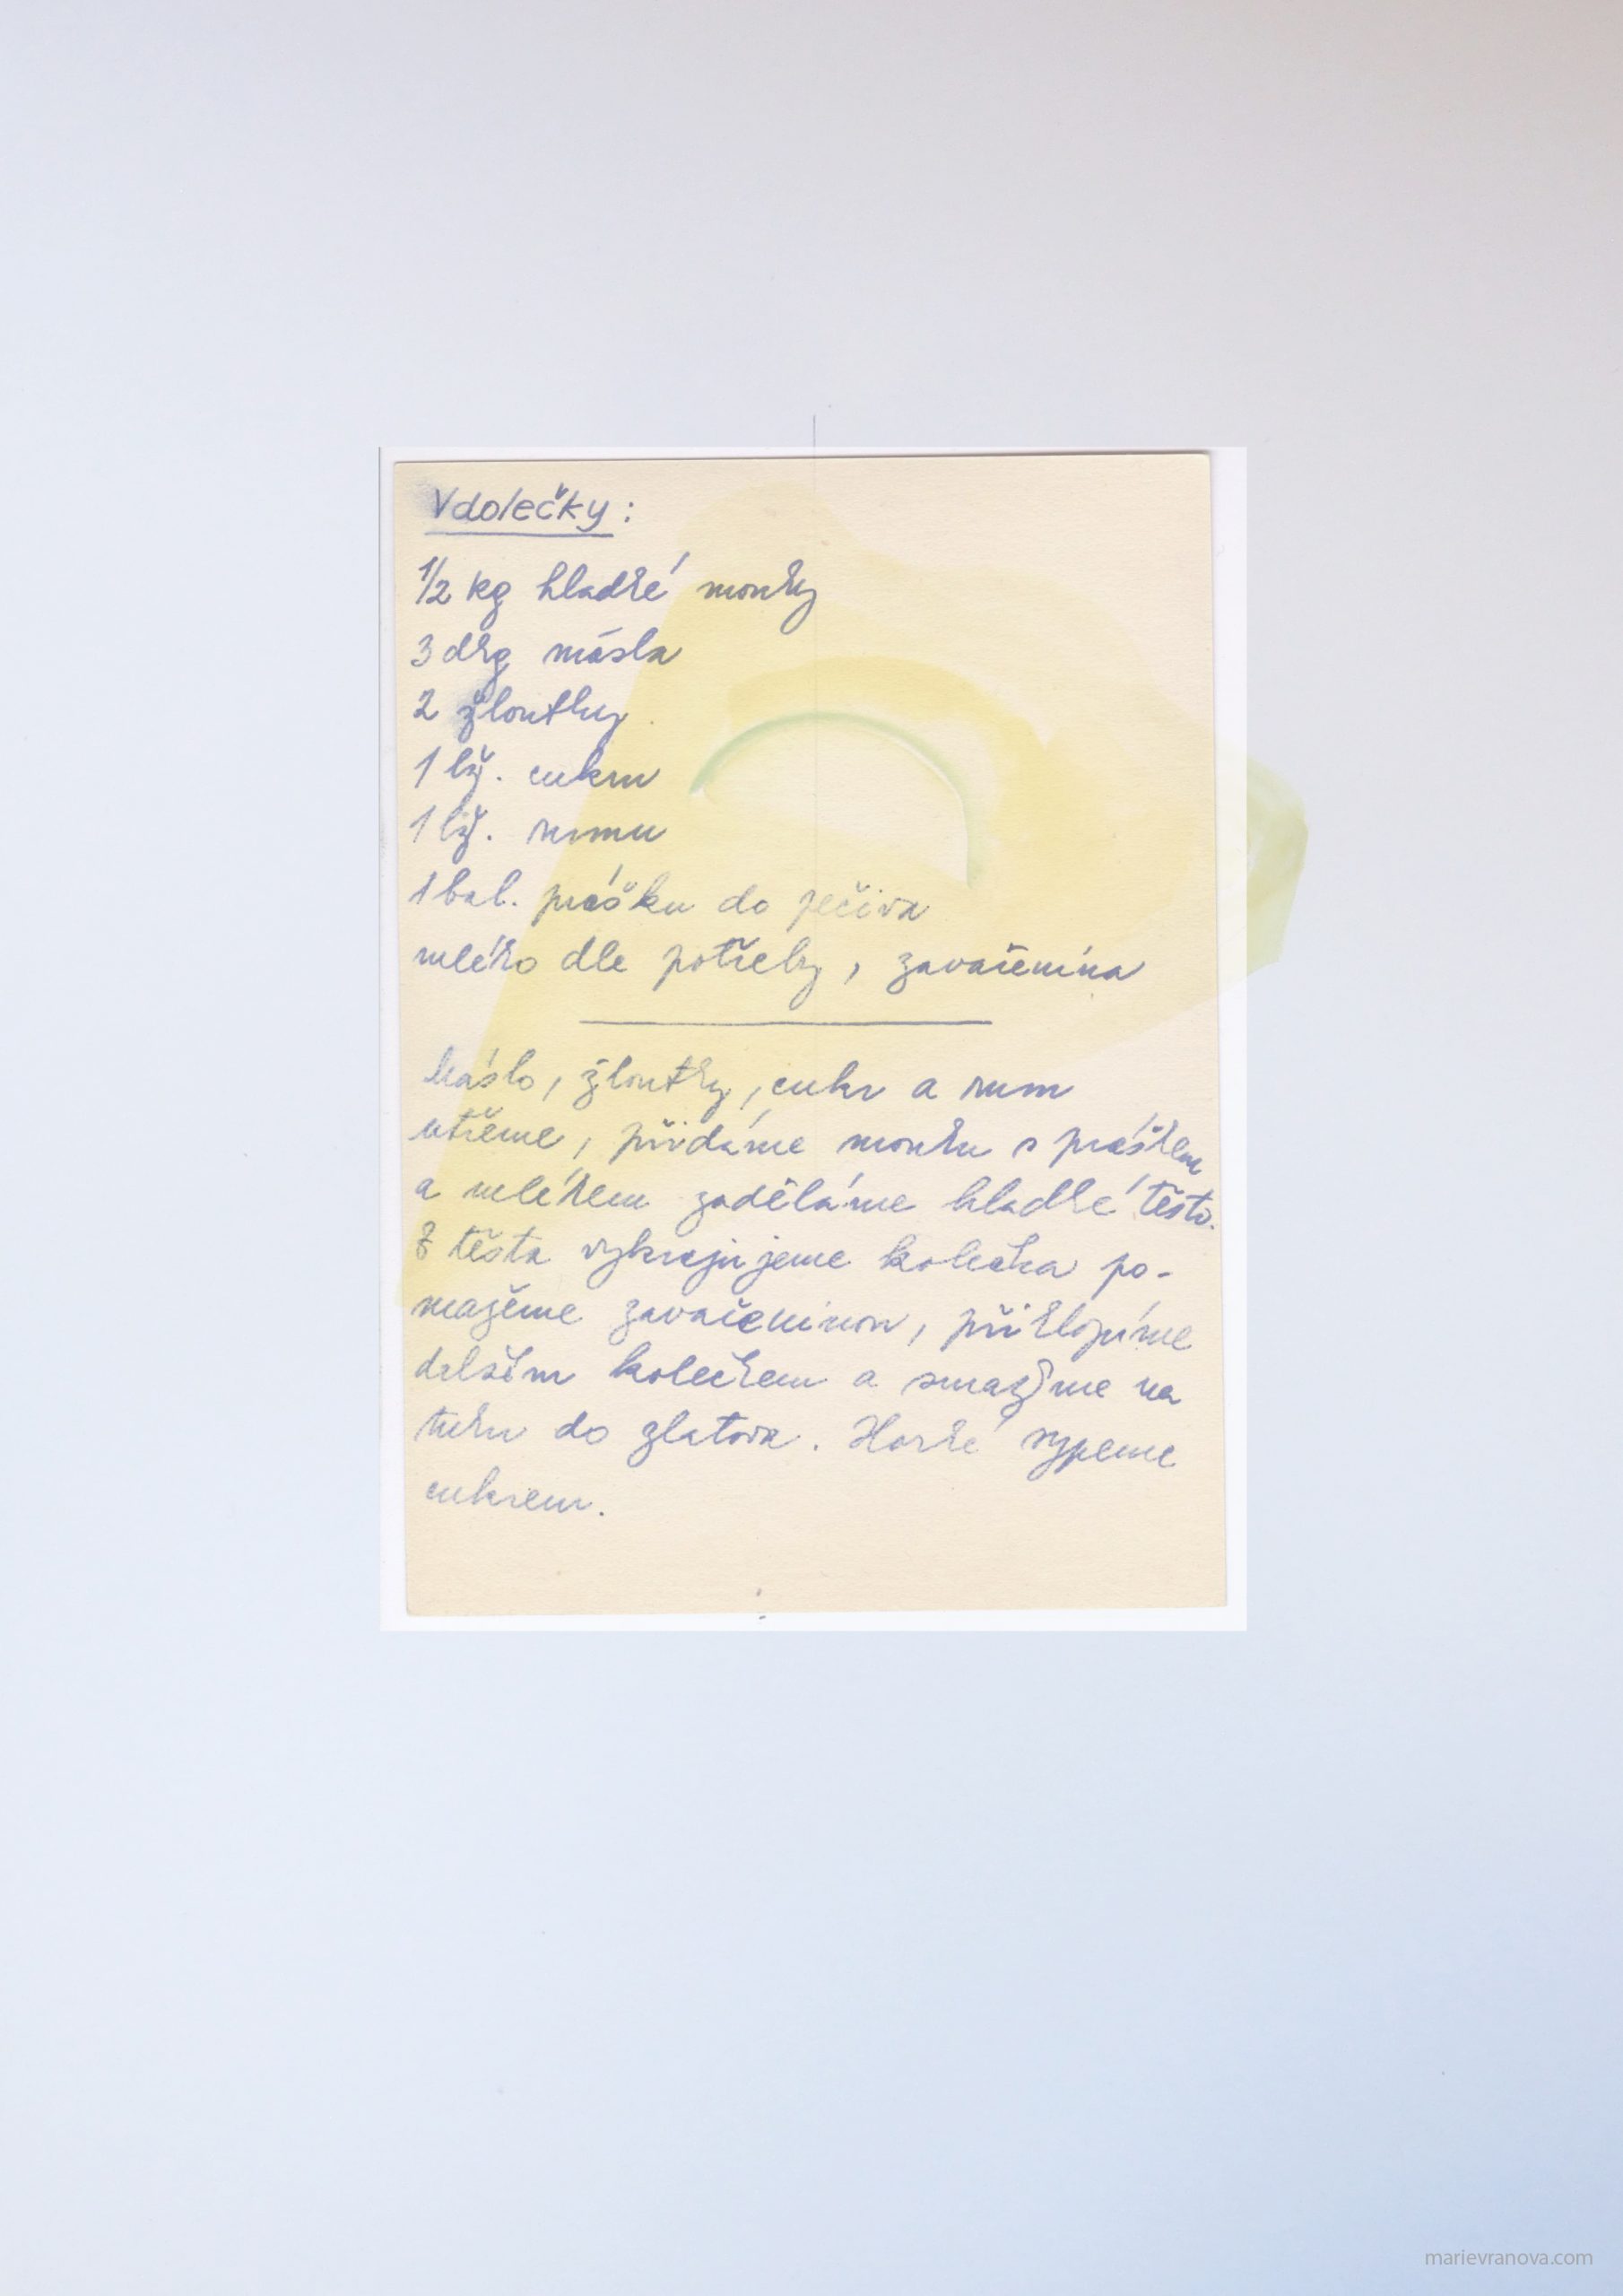 Vdolečky:
1/2 kg hladké mouky
3 dkg másla
2 žloutky
1 lž. cukru
1 lž. rumu
1 bal. prášku do pečiva
mléko dle potřeby, zavařenina
Máslo, žloutky, cukr a rum
utřeme, přidáme mouku s práškem
a mlékem zaděláme hladké těsto.
Z těsta vykrajujeme kolečka po-
mažeme zavařeninou, přiklopíme
dalším kolečkem a smažíme na
tuku do zlatova. Horké sypeme
cukrem.
marievranova.com